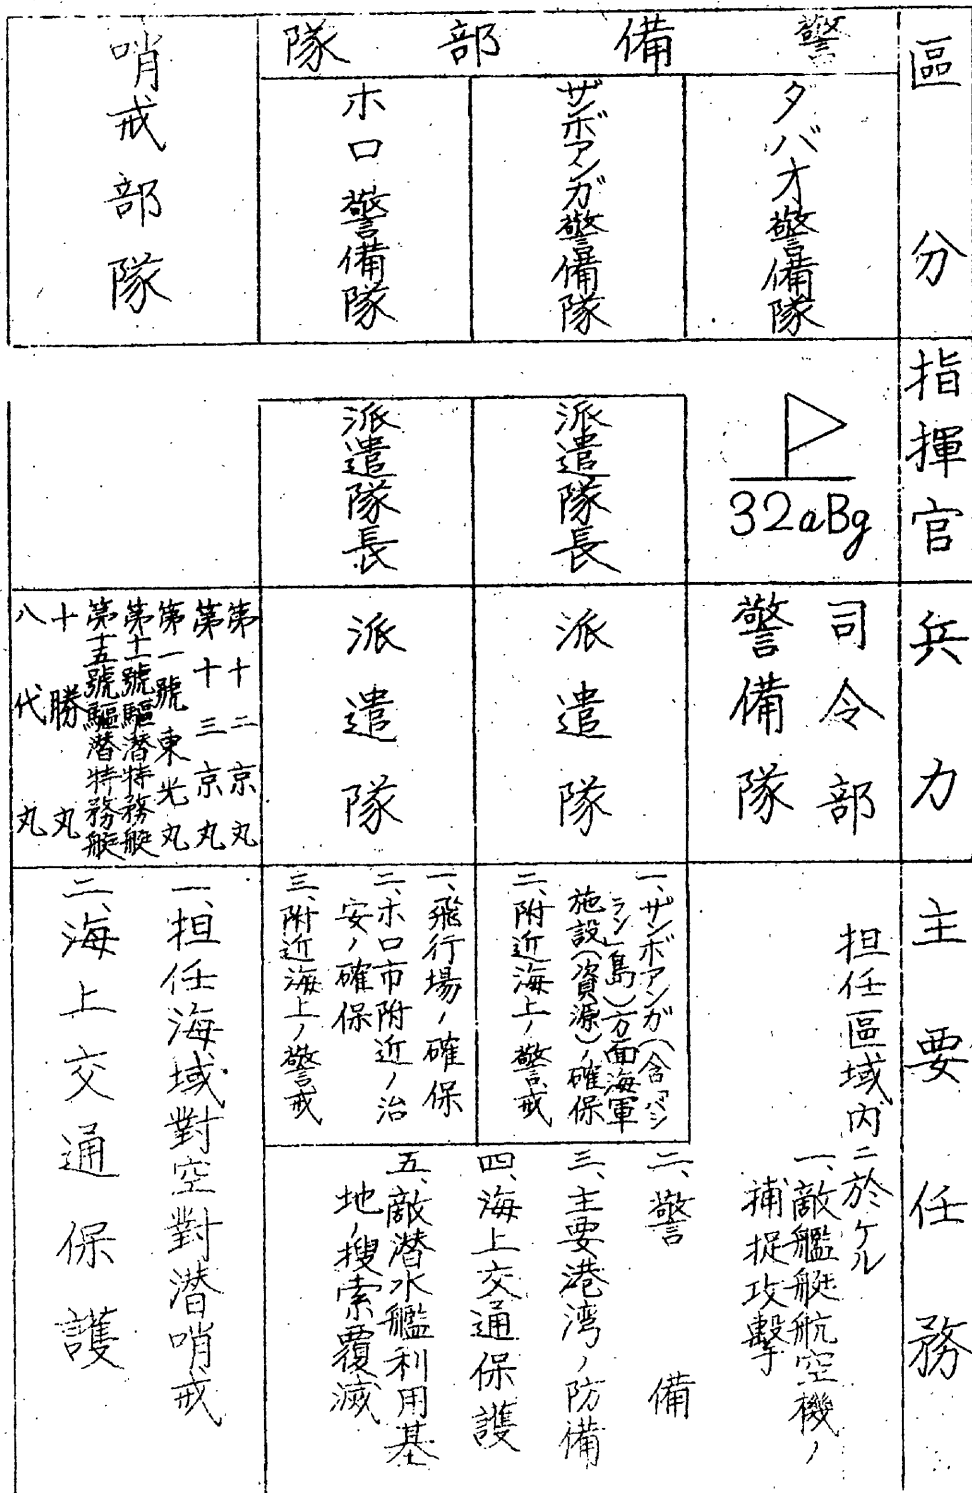 區分
指揮官
兵力
主要任務
警備部隊
タバオ警備隊
32aBg
司令部
警備隊
担任區域内ニ於ケル
一、敵艦艇航空機ノ
捕捉攻擊
二、警備
三、主要港湾ノ防備
四、海上交通保護
五、敵潜水艦利用基
地ノ搜索覆滅
ザンボアンガ警備隊
派遣隊長
派遣隊
一、ザンボアンガ(含「バシ
ラン」島)方面海軍
施設(資源)ノ確保
二、附近海上ノ警戒
ホロ警備隊
派遣隊長
派遣隊
一、飛行場ノ確保
二、ホロ市附近ノ治
安ノ確保
三、附近海上ノ警戒
哨戒部隊
第十二京丸
第十三京丸
第一號東光丸
第十一號驅潜特務艇
第十五號驅潜特務艇
十勝丸
八代丸
一、担任海域對空對潜哨戒
二、海上交通保護